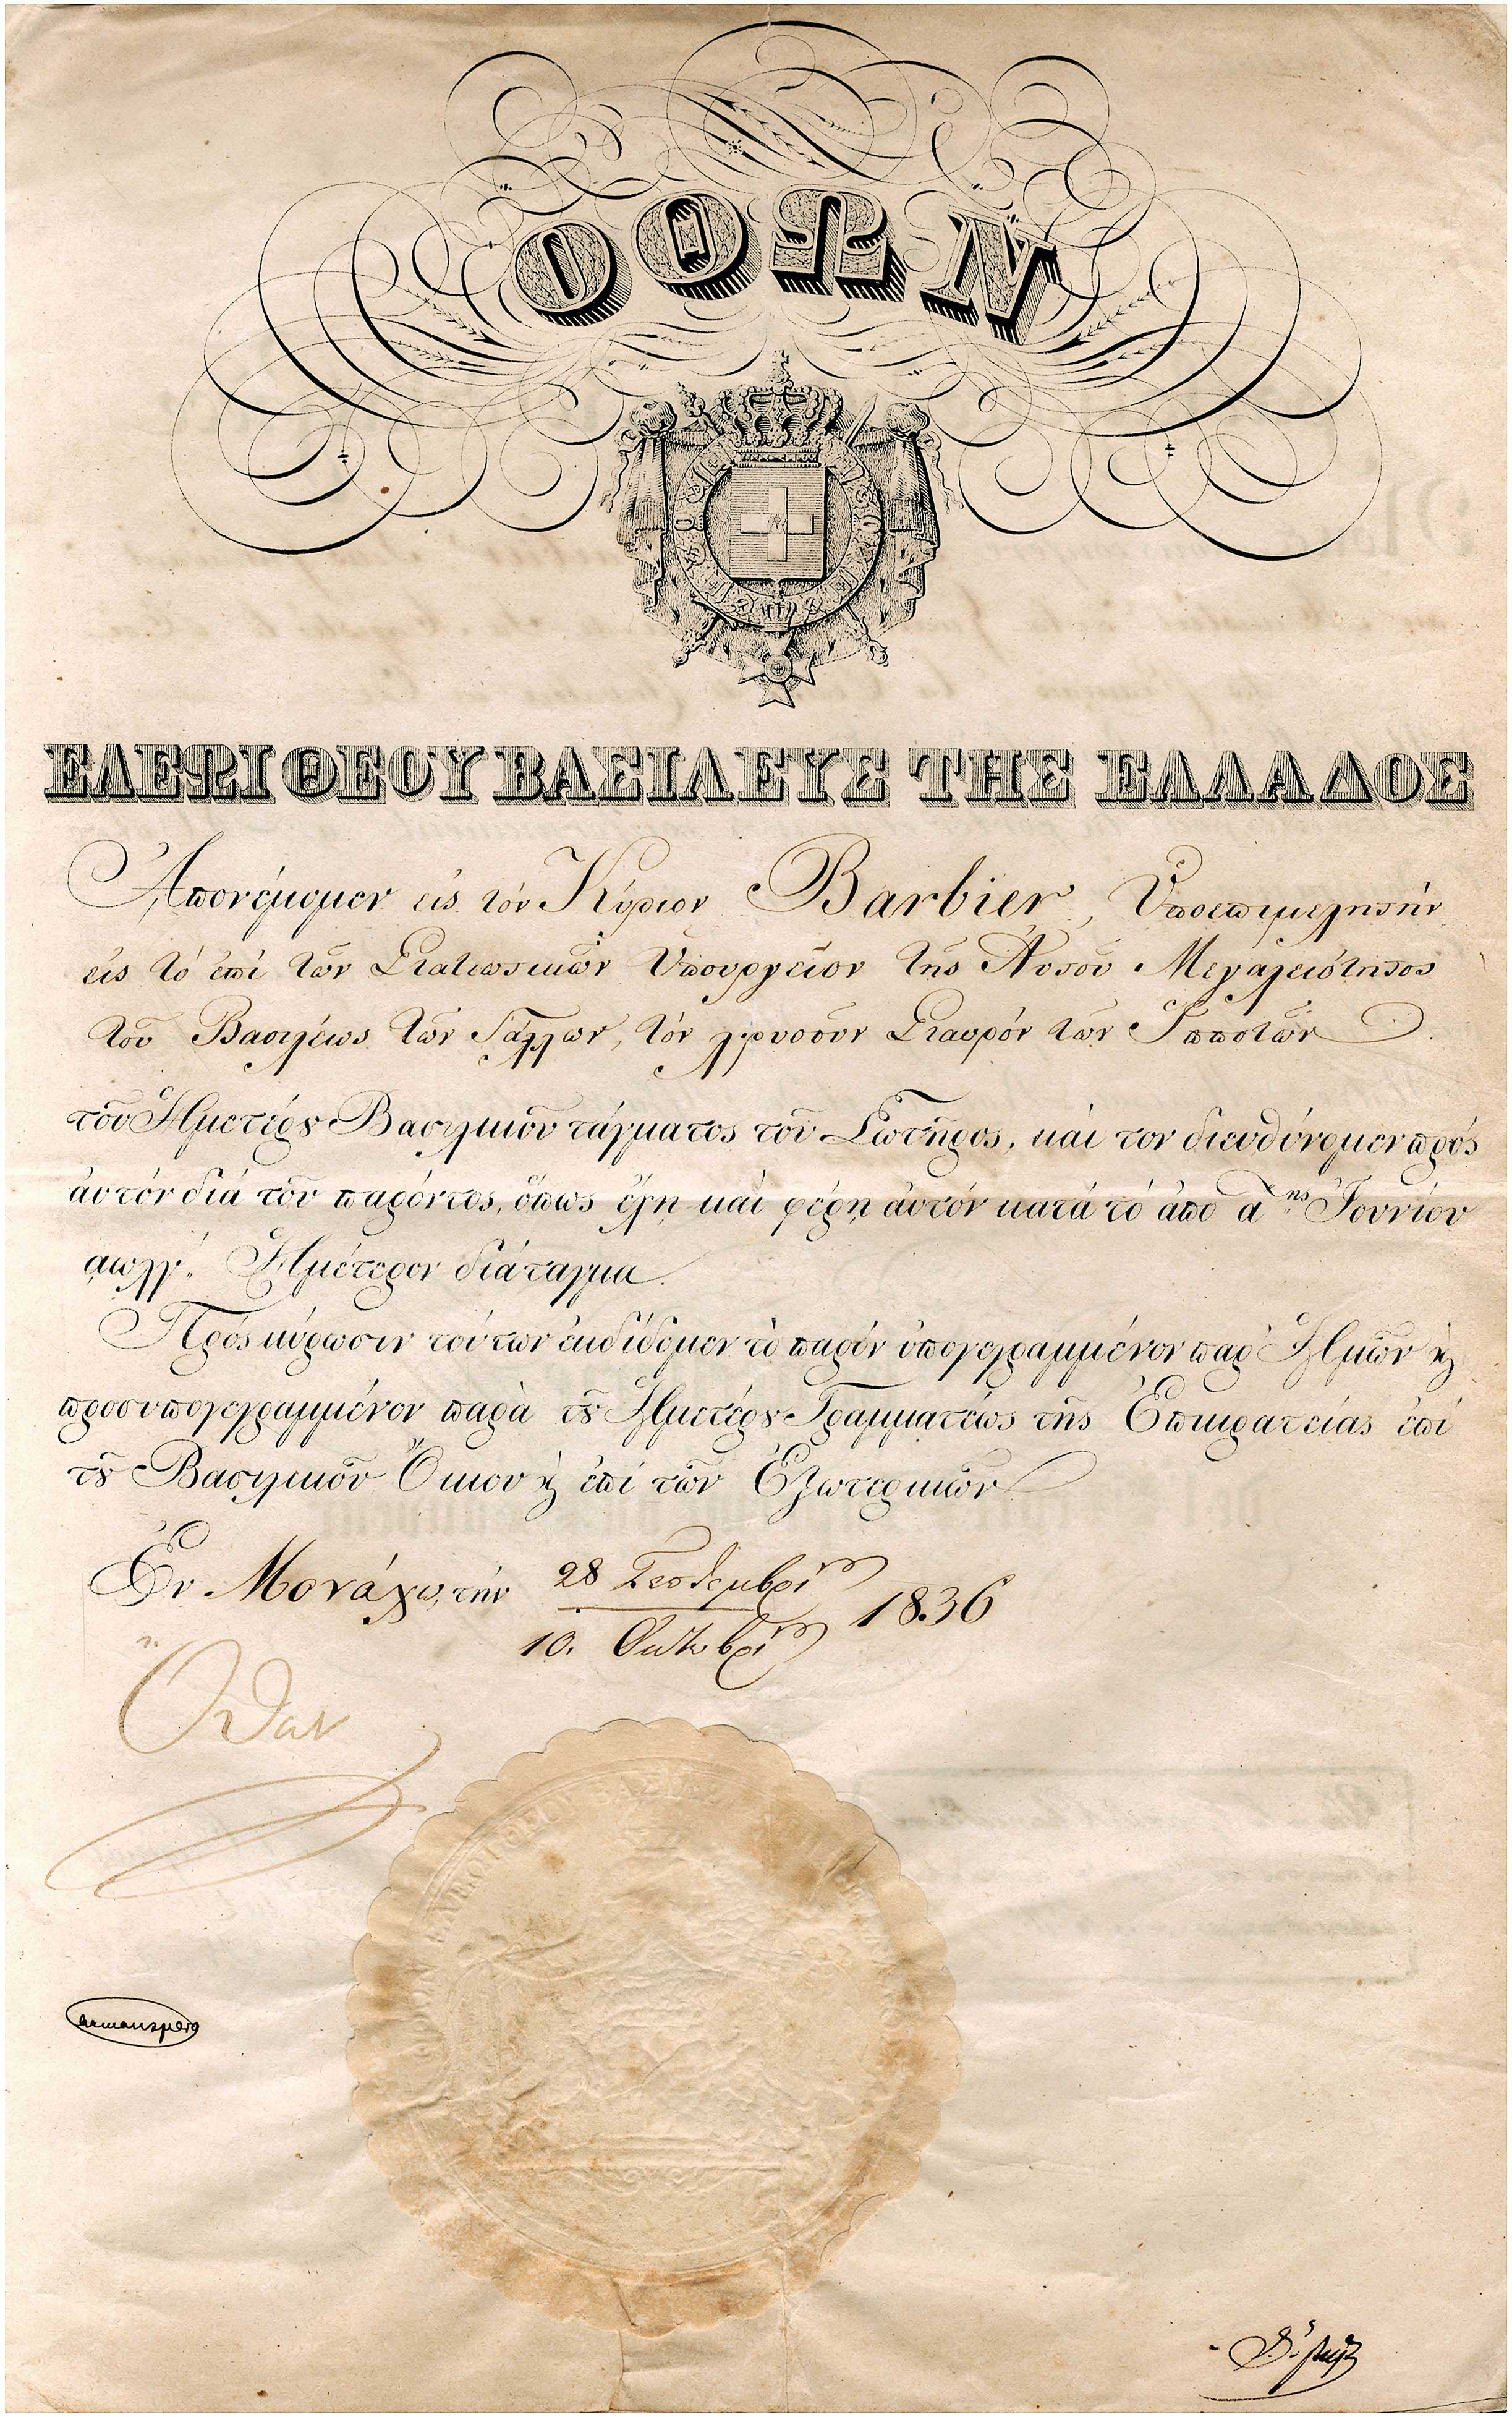 ΟΘΩΝ
ΕΛΕΩΙ ΘΕΟΥ ΒΑΣΙΛΕΥΣ ΤΗΣ ΕΛΛΑΔΟΣ
Ἀπονέμομεν εἰς τὸν Κύριον Barbier, Ὑποεπιμελητὴν
εἰς τὸ ἐπὶ τῶν Στατιωτικῶν Ὑπουργεῖον τῆς Αὐτοῦ Μεγαλειότητος
τοῦ Βασιλέως τῶν Γάλλων, τὸν χρυσοῦν Σταυρὸν τῶν Ἱπποτῶν
τοῦ Ἡμετέρȣ Βασιλικοῦ τάγματος τοῦ Σωτῆρος, καὶ τὸν διευθύνομεν πρὸς
ἀυτὸν διὰ τοῦ παρόντος, ὅπως ἔχη καὶ φέρη ἀυτὸν κατὰ τὸ ἀπὸ α.ης Ἰουνίου
αωλγ'. Ἡμέτερον διάταγμα.
Πρὸς κύρωσιν τούτων ἐκδίδομεν τὸ παρὸν ὑπογεγραμμένον παρ' Ἡμῶν ϗ
προσυπογεγραμμένον παρὰ τȣ͂ Ἡμετέρȣ Γραμματέως τῆς Ἐπικρατείας ἐπὶ
τȣ͂ Βασιλικοῦ Ὄικου ϗ ἐπὶ τῶν Ἐξωτερικῶν
Ἐν Μονάχῳ, τὴν 28 Σεπτεμβρί 1836
10. Ὀκτωβρί
Ὄθων